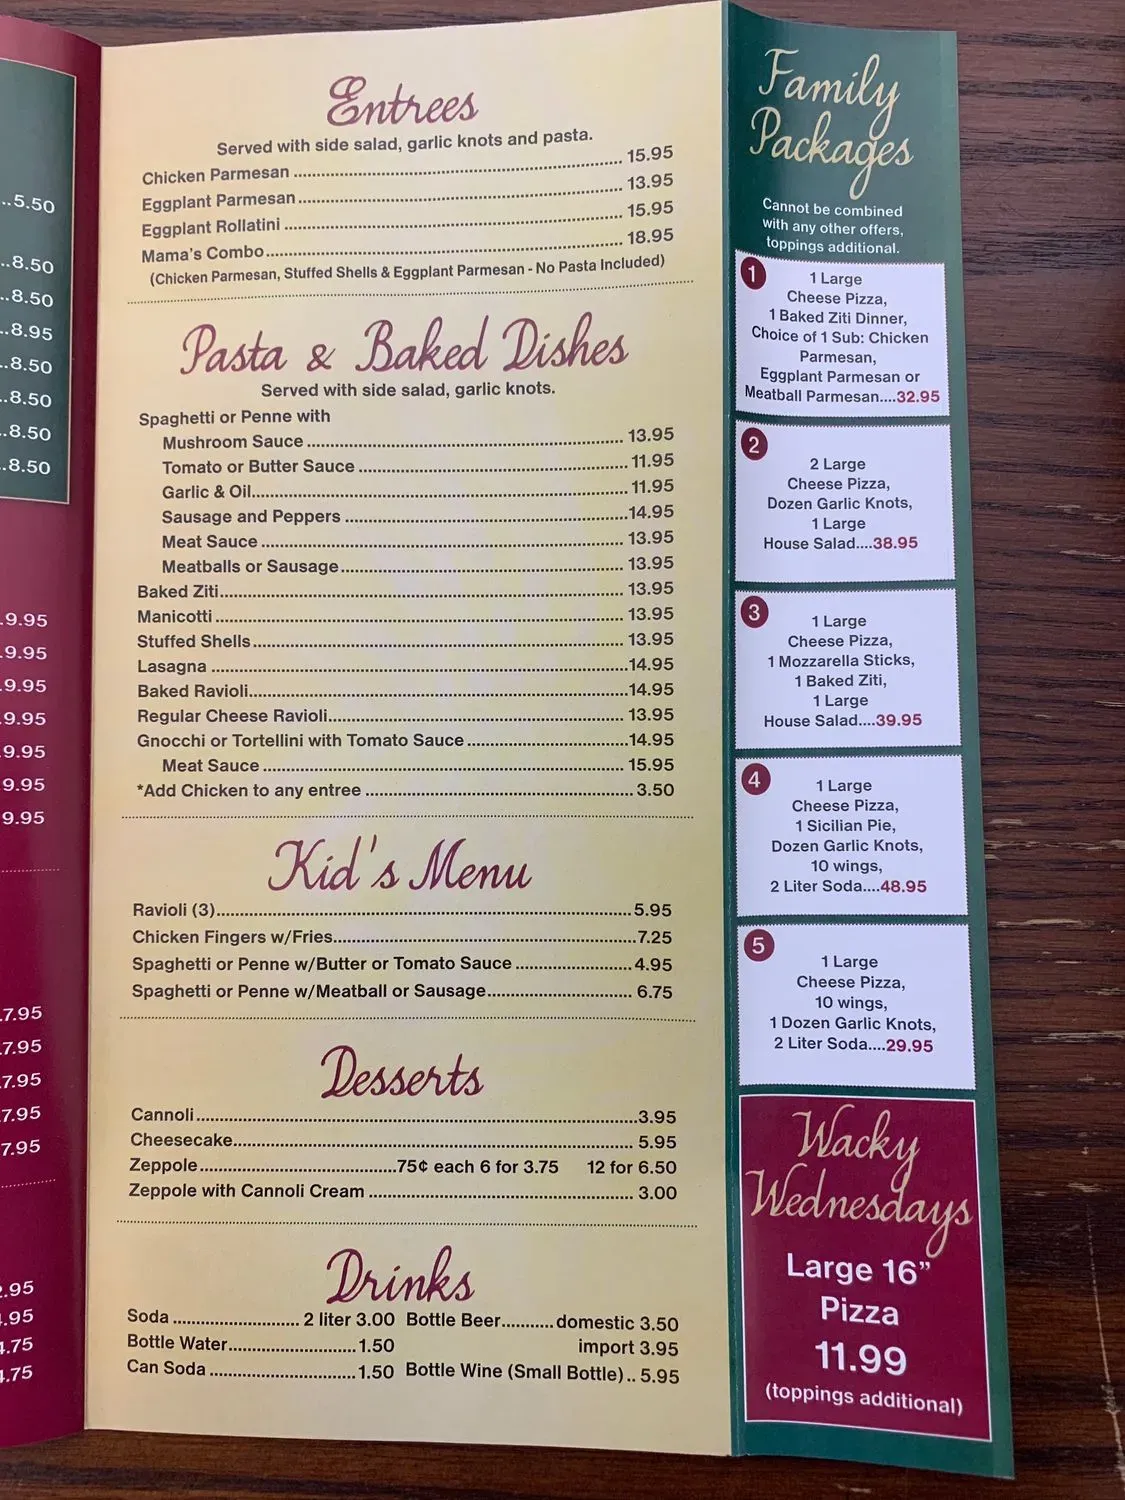 ..5.50
..8.50
..8.50
..8.95
..8.50
..8.50
..8.50
..8.50
.9.95
.9.95
.9.95
.9.95
.9.95
.9.95
9.95
.7.95
.7.95
.7.95
.7.95
7.95
.95
.95
.75
.75
Entrees
Served with side salad, garlic knots and pasta.
Chicken Parmesan ... 15.95
Eggplant Parmesan ... 13.95
Eggplant Rollatini ... 15.95
Mama's Combo ... 18.95
(Chicken Parmesan, Stuffed Shells & Eggplant Parmesan - No Pasta Included)
Pasta & Baked Dishes
Served with side salad, garlic knots.
Spaghetti or Penne with
Mushroom Sauce ... 13.95
Tomato or Butter Sauce ... 11.95
Garlic & Oil ... 11.95
Sausage and Peppers ... 14.95
Meat Sauce ... 13.95
Meatballs or Sausage ... 13.95
Baked Ziti ... 13.95
Manicotti ... 13.95
Stuffed Shells ... 13.95
Lasagna ... 14.95
Baked Ravioli ... 14.95
Regular Cheese Ravioli ... 13.95
Gnocchi or Tortellini with Tomato Sauce ... 14.95
Meat Sauce ... 15.95
*Add Chicken to any entree ... 3.50
Kid's Menu
Ravioli (3) ... 5.95
Chicken Fingers w/Fries ... 7.25
Spaghetti or Penne w/Butter or Tomato Sauce ... 4.95
Spaghetti or Penne w/Meatball or Sausage ... 6.75
Desserts
Cannoli ... 3.95
Cheesecake ... 5.95
Zeppole ... 75¢ each 6 for 3.75 12 for 6.50
Zeppole with Cannoli Cream ... 3.00
Drinks
Soda ... 2 liter 3.00 Bottle Beer ... domestic 3.50
Bottle Water ... 1.50 import 3.95
Can Soda ... 1.50 Bottle Wine (Small Bottle) .. 5.95
Family
Packages
Cannot be combined
with any other offers,
toppings additional.
1
1 Large
Cheese Pizza,
1 Baked Ziti Dinner,
Choice of 1 Sub: Chicken
Parmesan,
Eggplant Parmesan or
Meatball Parmesan....32.95
2
2 Large
Cheese Pizza,
Dozen Garlic Knots,
1 Large
House Salad....38.95
3
1 Large
Cheese Pizza,
1 Mozzarella Sticks,
1 Baked Ziti,
1 Large
House Salad....39.95
4
1 Large
Cheese Pizza,
1 Sicilian Pie,
Dozen Garlic Knots,
10 wings,
2 Liter Soda....48.95
5
1 Large
Cheese Pizza,
10 wings,
1 Dozen Garlic Knots,
2 Liter Soda....29.95
Wacky
Wednesdays
Large 16”
Pizza
11.99
(toppings additional)